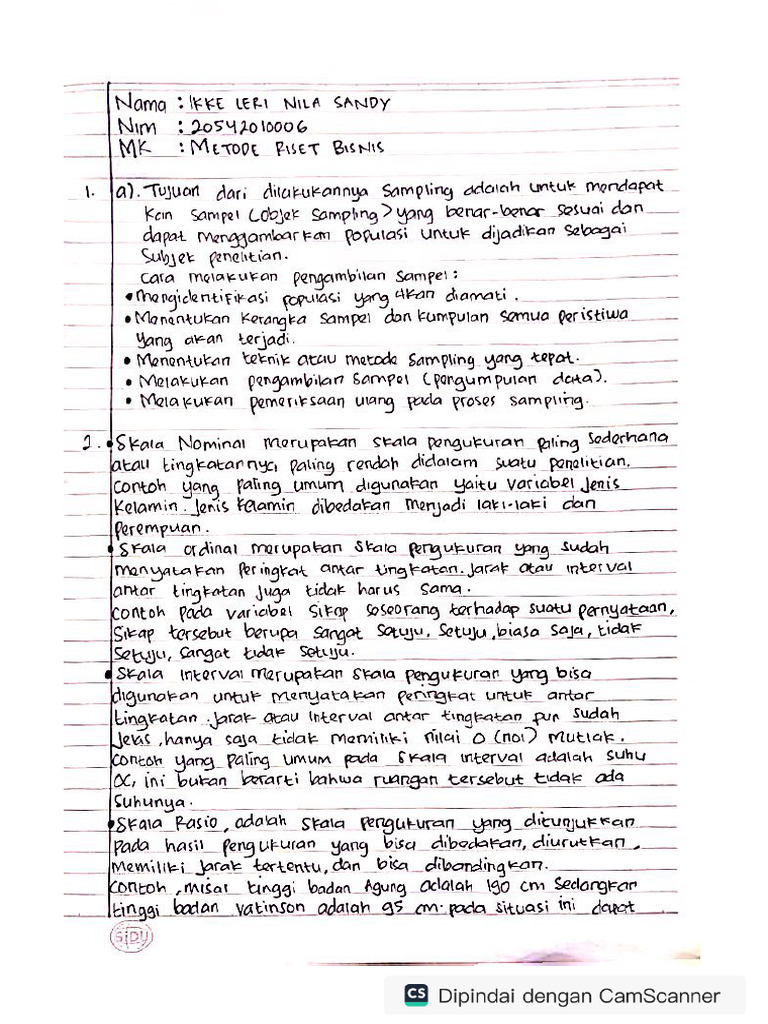 Nama : IKKE LERI NILA SANDY
Nim : 20542010006
MK : METODE RISET BISNIS
1. a). Tujuan dari dilakukannya sampling adalah untuk mendapat
kan sampel (objek sampling) yang benar-benar sesuai dan
dapat menggambarkan populasi untuk dijadikan sebagai
subjek penelitian.
Cara melakukan pengambilan sampel :
• Mengidentifikasi populasi yang akan diamati.
• Menentukan kerangka sampel dan kumpulan semua peristiwa
yang akan terjadi.
• Menentukan teknik atau metode sampling yang tepat.
• Melakukan pengambilan sampel (pengumpulan data).
• Melakukan pemeriksaan ulang pada proses sampling.
2. • Skala Nominal merupakan skala pengukuran paling sederhana
atau tingkatannya paling rendah didalam suatu penelitian.
Contoh yang paling umum digunakan yaitu variabel jenis
kelamin. Jenis kelamin dibedakan menjadi laki-laki dan
perempuan.
• Skala ordinal merupakan skala pengukuran yang sudah
menyatakan peringkat antar tingkatan. Jarak atau interval
antar tingkatan juga tidak harus sama.
Contoh pada variabel sikap seseorang terhadap suatu pernyataan,
sikap tersebut berupa sangat setuju, setuju, biasa saja, tidak
setuju, sangat tidak setuju.
• Skala interval merupakan skala pengukuran yang bisa
digunakan untuk menyatakan peringkat untuk antar
tingkatan. Jarak atau interval antar tingkatan pun sudah
jelas, hanya saja tidak memiliki nilai 0 (nol) mutlak.
Contoh yang paling umum pada skala interval adalah suhu
0C, ini bukan berarti bahwa ruangan tersebut tidak ada
suhunya.
• Skala Rasio, adalah skala pengukuran yang ditunjukkan
pada hasil pengukuran yang bisa dibedakan, diurutkan,
memiliki jarak tertentu, dan bisa dibandingkan.
Contoh, misal tinggi badan Agung adalah 190 cm sedangkan
tinggi badan Vatinson adalah 95 cm. pada situasi ini dapat
SiDU
CS Dipindai dengan CamScanner